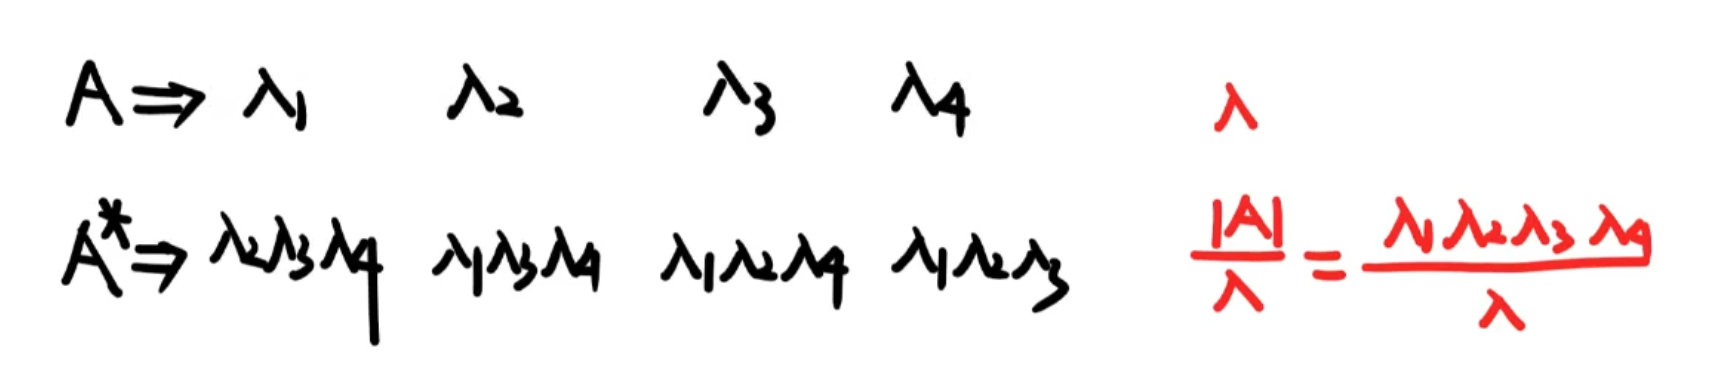 A ⇒ λ₁ λ₂ λ₃ λ₄ λ
A* ⇒ λ₂λ₃λ₄ λ₁λ₃λ₄ λ₁λ₂λ₄ λ₁λ₂λ₃ |A|/λ = λ₁λ₂λ₃λ₄/λ